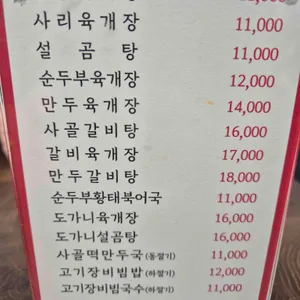 사리육개장 11,000
설곰탕 11,000
순두부육개장 12,000
만두육개장 14,000
사골갈비탕 16,000
갈비육개장 17,000
만두갈비탕 18,000
순두부황태북어국 11,000
도가니육개장 16,000
도가니설곰탕 16,000
사골떡만두국(동절기) 11,000
고기장비빔밥(하절기) 12,000
고기장비빔국수(하절기) 11,000